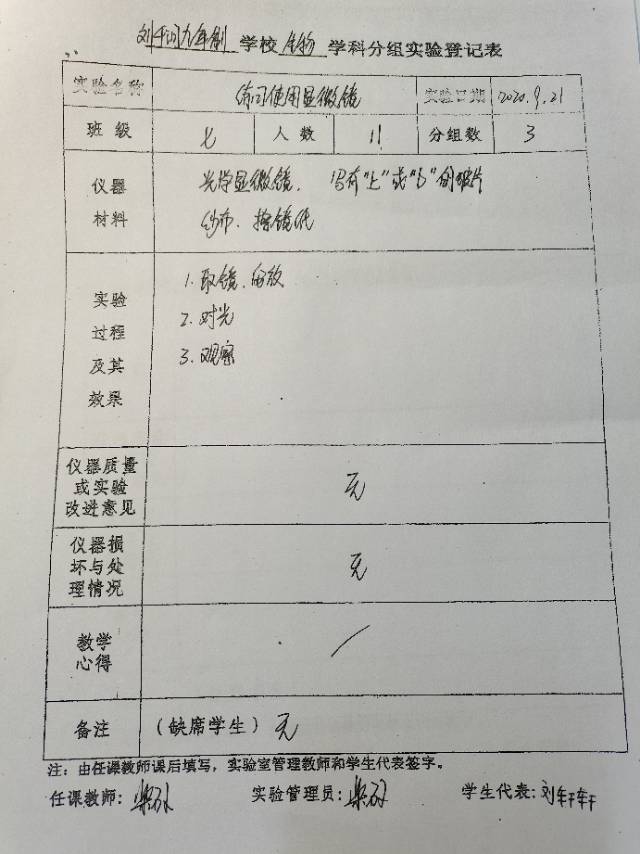 九年制 学校 生物 学科分组实验登记表
实验名称 练习使用显微镜 实验日期 2020.9.21
班级 七 人数 11 分组数 3
仪器材料 光学显微镜. 写有"上"或"b"的玻片
纱布. 擦镜纸
实验过程及其效果 1.取镜.安放
2.对光
3.观察
仪器质量或实验改进意见 无
仪器损坏与处理情况 无
教学心得 /
备注 (缺席学生) 无
注：由任课教师课后填写，实验室管理教师和学生代表签字。
任课教师: 实验管理员: 学生代表: 刘轩轩